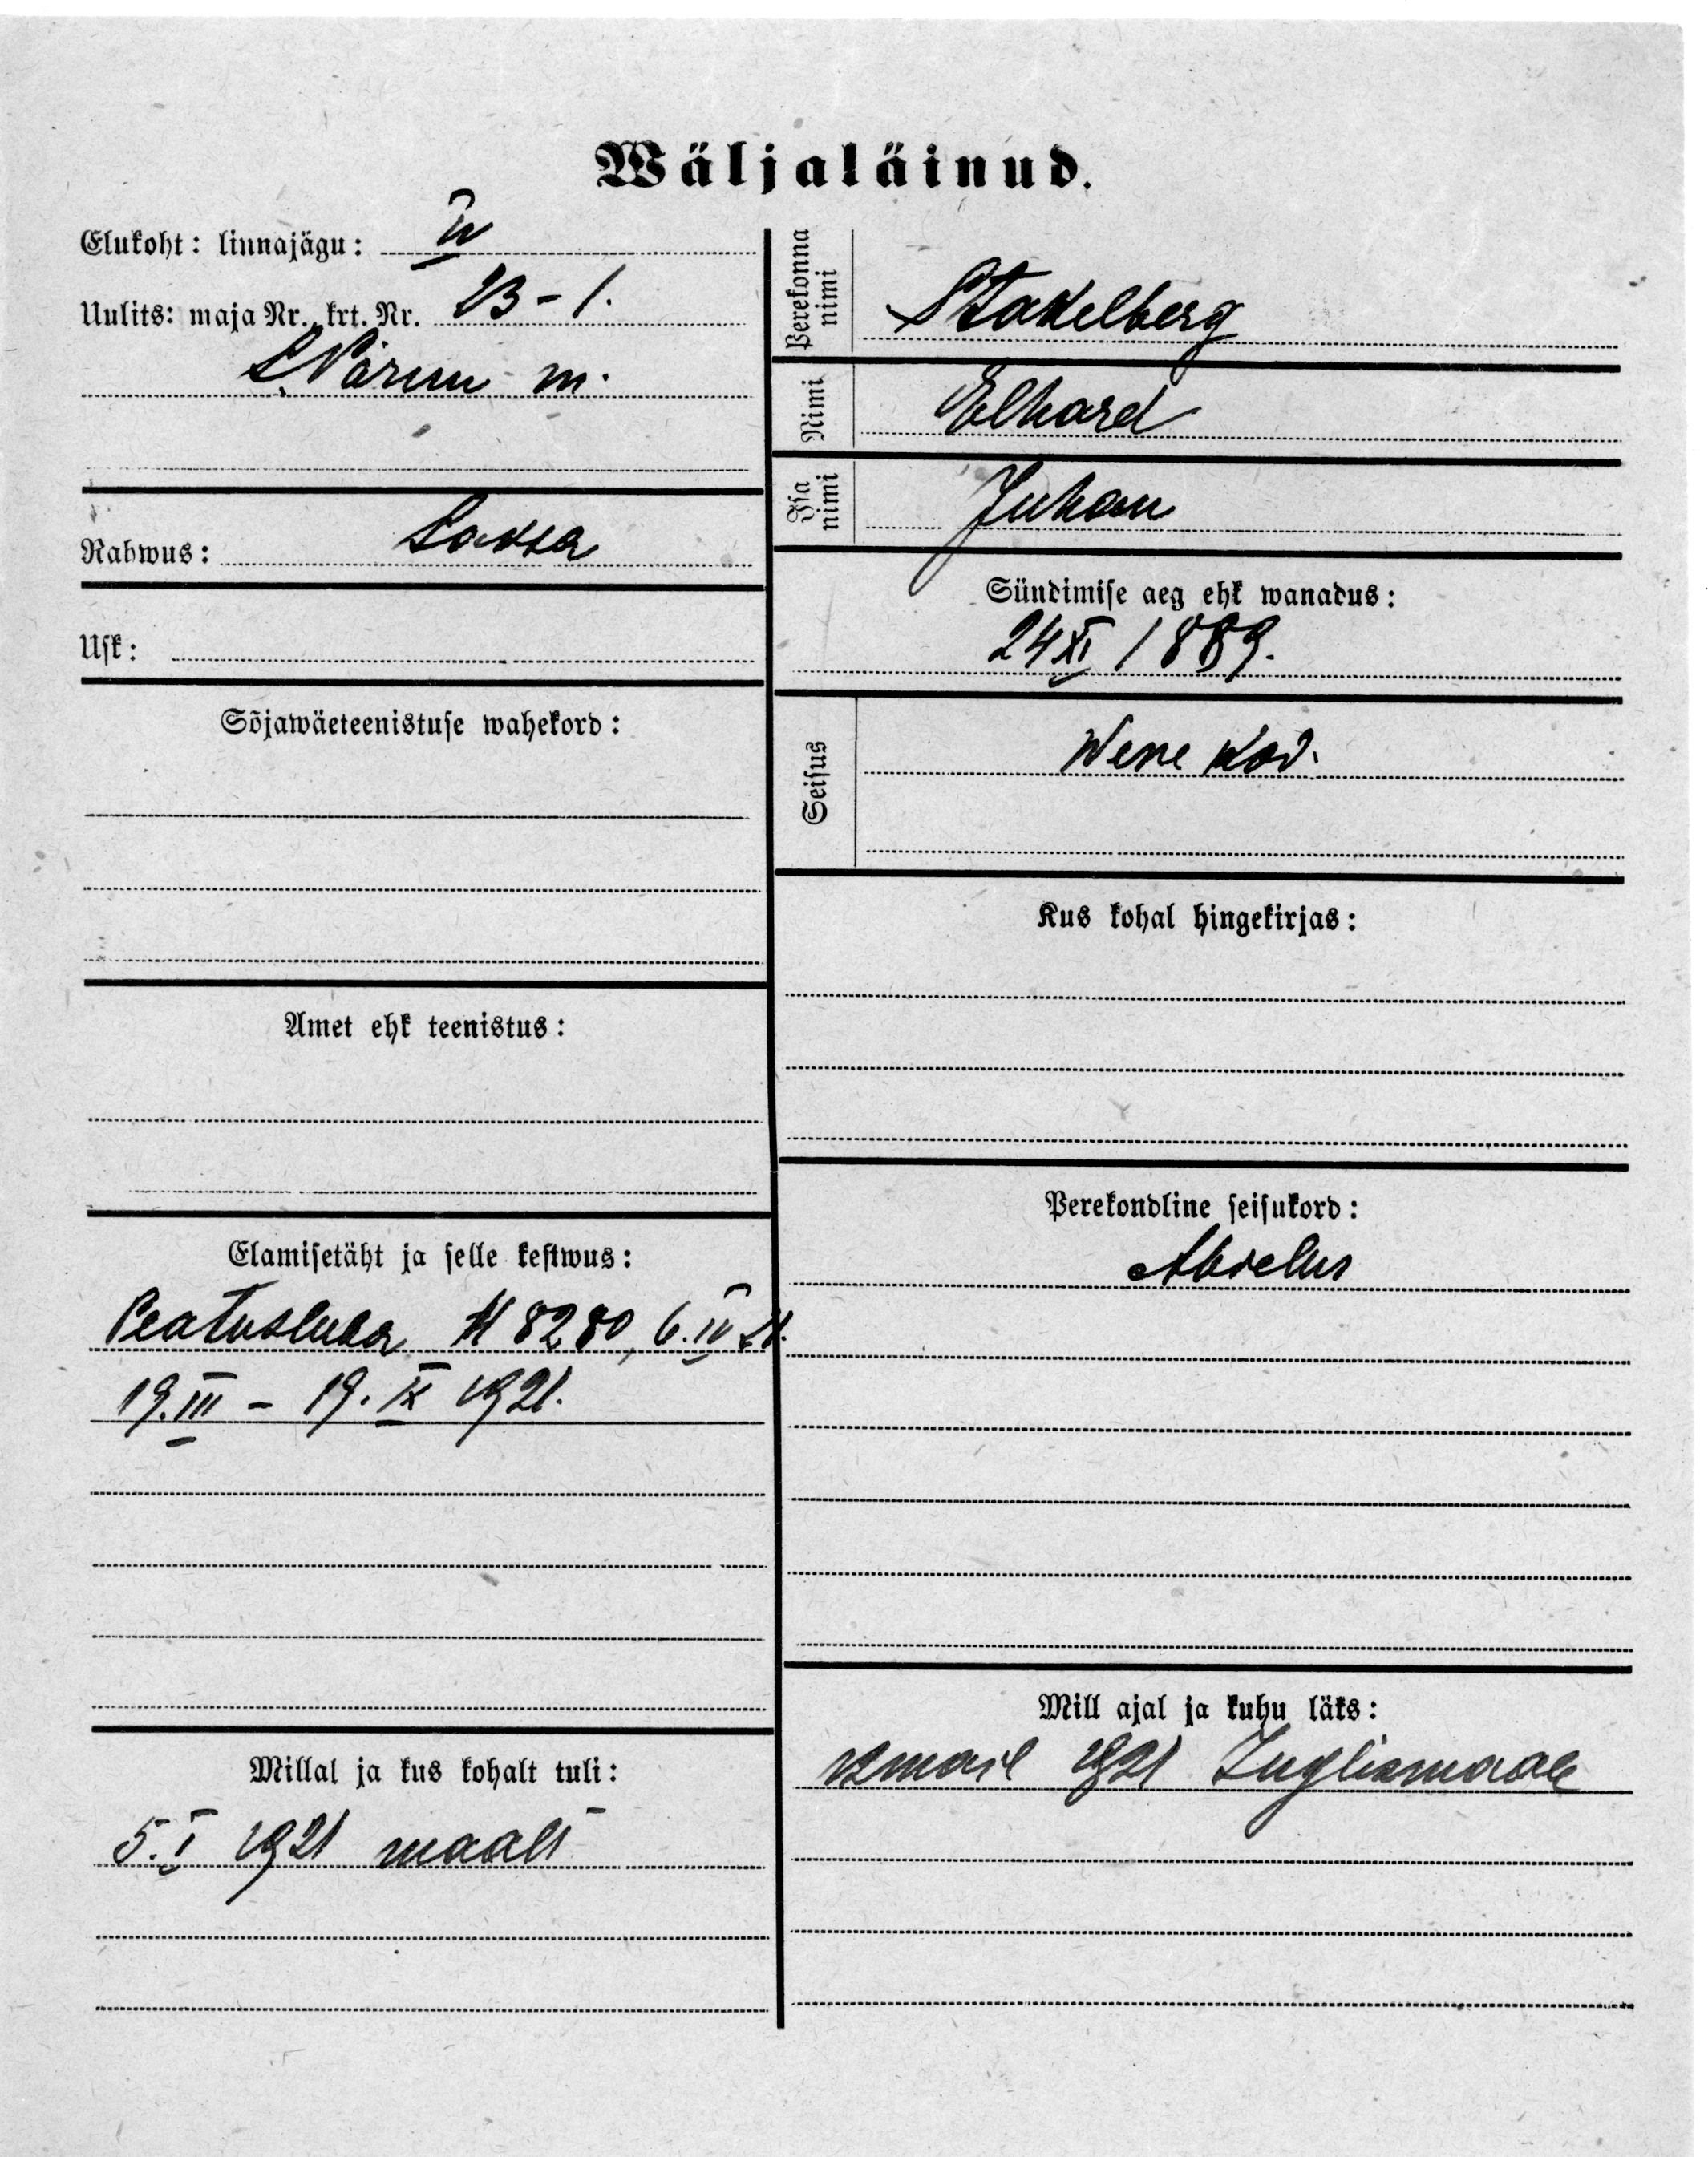 Wäljaläinud.
Elukoht: linnajägu: IV
Uulits: maja Nr., krt. Nr. 23 - 1.
S. Pärnu m.
Rahwus: Saksa
Usk:
Sõjawäeteenistuse wahekord:
Amet ehk teenistus:
Elamisetäht ja selle kestwus:
Peatusluba № 8280, 6.IV 21.
19.III - 19.IX 1921.
Millal ja kus kohalt tuli:
5.I 1921 maalt
Perekonna nimi Stakelberg
Nimi Elhard
Isa nimi Juhan
Sündimise aeg ehk wanadus:
24 XI 1889.
Seisus Wene kod.
Kus kohal hingekirjas:
Perekondline seisukord:
Abielus
Mill ajal ja kuhu läks:
12 mail 1921 Inglismaale